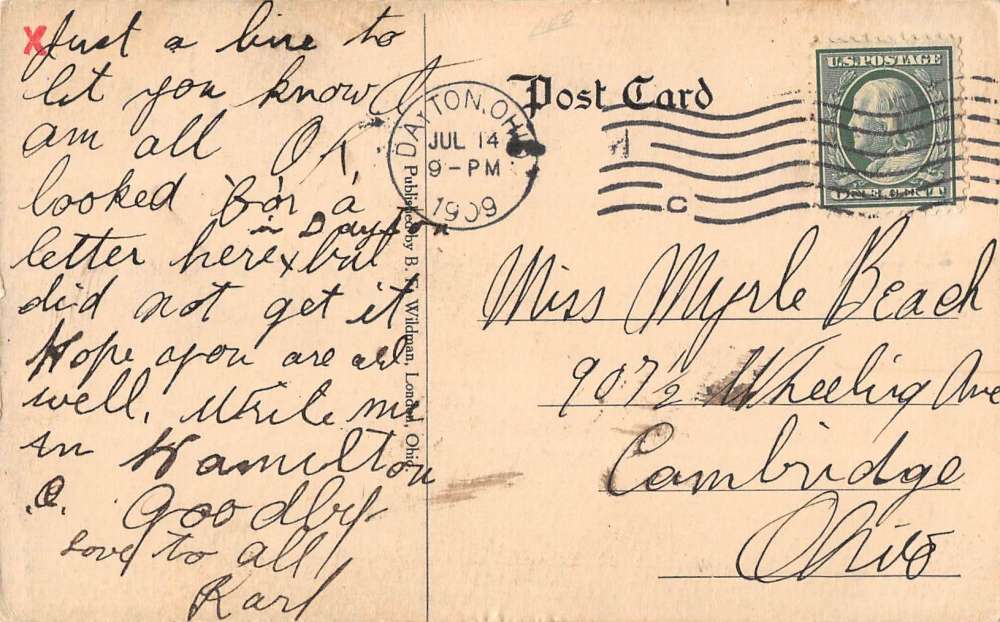 Just a line to
let you know I
am all OK
looked for a
in Dayton
letter here x but
did not get it
Hope you are all
well. Write me
in Hamilton
O. Goodby
Love to all
Karl
Post Card
DAYTON, OHIO
JUL 14
9-PM
1909
C
U.S. POSTAGE
Published by B. Wildman, London, Ohio.
Miss Myrle Beach
907½ Wheeling Ave
Cambridge
Ohio